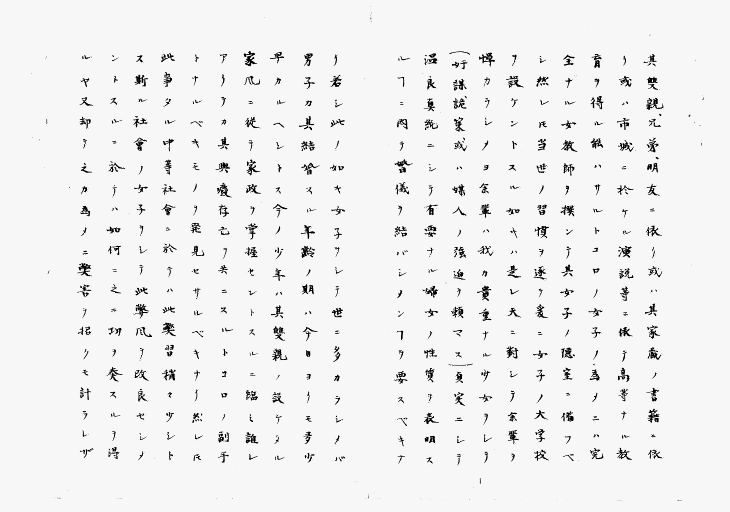 其雙親、兄弟、朋友ニ依リ或ハ其家蔵ノ書籍ニ依
リ或ハ市城ニ於ケル演説等ニ依テ高等ナル教
育ヲ得ル能ハサルトコロノ女子ノ為メニハ完
全ナル女教師ヲ撰ンテ其女子ノ德室ニ備フベ
シ然レ𪜈当世ノ習慣ヲ逐ケ爰ニ女子ノ大学校
ヲ設ケントスル如キハ是レ天ニ對シテ余輩ヲ
憚カラシメヨ余輩ハ我カ貴重ナル少女ヲシテ
(奸謀詭策或ハ媒人ノ強迫ヲ頼マス)貞実ニシテ
温良真純ニシテ有要ナル婦女ノ性質ヲ表明ス
ルフニ因テ婚儀ヲ結バシメンフヲ要スベキナ
リ若シ此ノ如キ女子ヲシテ世ニ多カラシメバ
男子カ其結婚スル年齢ノ期ハ今日ヨリモ多少
早カルヘントス今ノ少年ハ其雙親ノ設ケタル
家凮ニ従テ家政ヲ掌握セントスルニ臨ミ誰レ
アリテカ其興癈存亡ヲ共ニスルトコロノ副手
トナルベキモノヲ発見セサルベキナリ然レ𪜈
此事タル中等社會ニ於テハ此獘習稍々少シト
ス斯ル社會ノ女子ヲシテ此獘凮ヲ改良セシメ
ントスルニ於テハ如何ニ之ニ功ヲ奏スルヲ得
ルヤ又却テ之カ為メニ獘害ヲ招クモ計ラレザ